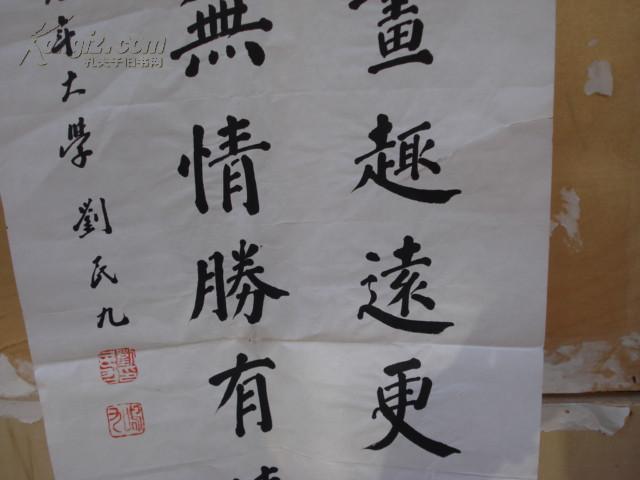 畫趣遠更
無情勝有
年大学 劉民九
Kongfz.com
孔夫子旧书网